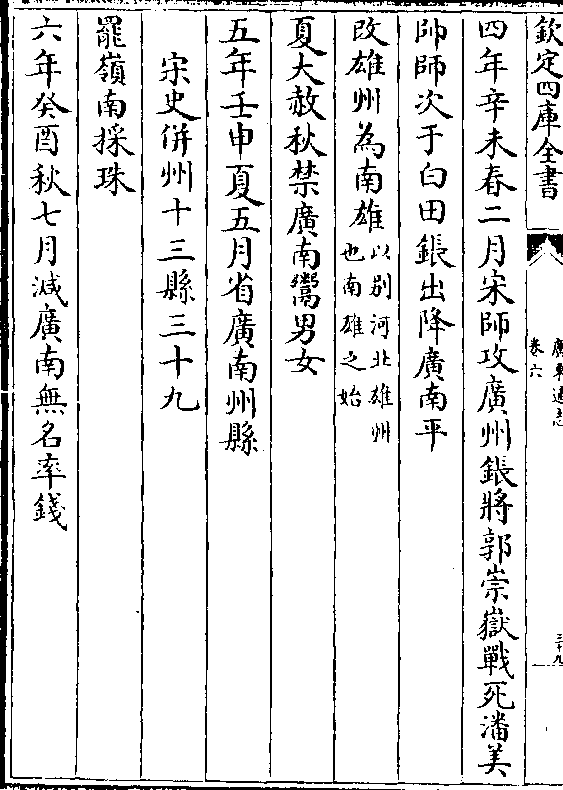 欽定四庫全書
廣東通志
卷六
三十九
四年辛未春二月宋師攻廣州鋹將郭崇嶽戰死潘美
帥師次于白田鋹出降廣南平
改雄州為南雄以別河北雄州
也南雄之始
夏大赦秋禁廣南鬻男女
五年壬申夏五月省廣南州縣
宋史併州十三縣三十九
罷嶺南採珠
六年癸酉秋七月減廣南無名率錢